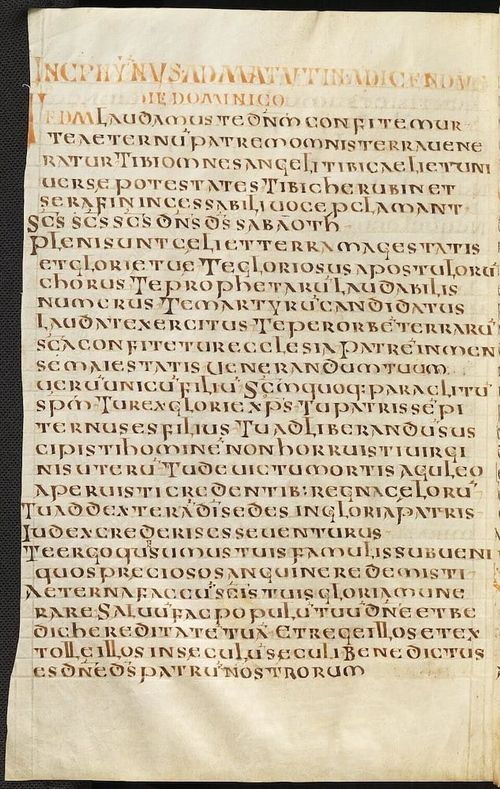 INCP HYNUS AD MATUTINA DICENDUS
DIE DOMINICO
TEDM LAUDAMUS TE DNM CONFITEMUR·
TE AETERNU PATREM OMNIS TERRA UENE
RATUR TIBI OMNES ANGELI TIBI CAELI ET UNI
UERSE POTESTATES TIBI CHERUBIN ET
SERAFIN INCESSABILI UOCE PCLAMANT·
SCS SCS SCS DNS DS SABAOTH·
PLENI SUNT CELI ET TERRA MAGESTATIS
ET GLORIE TUE TE GLORIOSUS APOSTULORU
CHORUS TE PROPHETARU LAUDABILIS
NUMERUS TE MARTYRU CANDIDATUS
LAUDAT EXERCITUS TE PER ORBE TERRARU
SCA CONFITETUR ECCLESIA PATRE INMEN
SE MAIESTATIS UENERANDUM TUUM
UERU UNICU FILIU SCMQUOQ: PARACLITU
SPM· TU REX GLORIE XPS· TU PATRIS SEPI
TERNUS ES FILIUS· TU AD LIBERANDU SUS
CIPISTI HOMINE NON HORRUISTI UIRGI
NIS UTERU· TU DEUICTU MORTIS AGULEO
APERUISTI CREDENTIB: REGNA CELORU
TU AD DEXTERA DI SEDES IN GLORIA PATRIS·
IUDEX CREDERIS ESSE UENTURUS·
TE ERGO QUSUMUS TUIS FAMULIS SUBUENI
QUOS PRECIOSO SANGUINE REDEMISTI·
AETERNA FAC CU SCIS TUIS GLORIA MUNE
RARE SALUU FAC POPULU TUU DNE ET BE
DIC HEREDITATE TUA· ET REGE ILLOS ET EX
TOLLE ILLOS IN SECULU SECULI BENEDICTUS
ES DNE DS PATRU NOSTRORUM